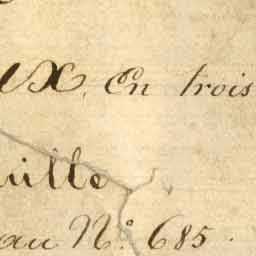 ux, En trois
uille
au N.º 685.